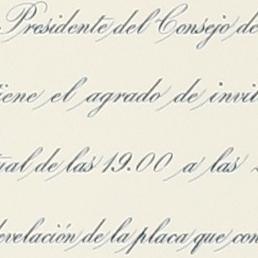 Presidente del Consejo de
iene el agrado de invit
ual de las 19.00 a las
evelación de la placa que con